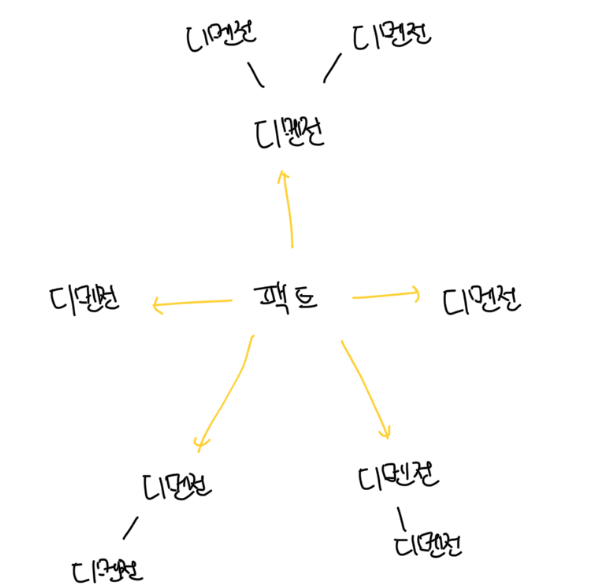 디멘전 디멘전
디멘전
디멘전 팩트 디멘전
디멘전 디멘전
디멘전 디멘전